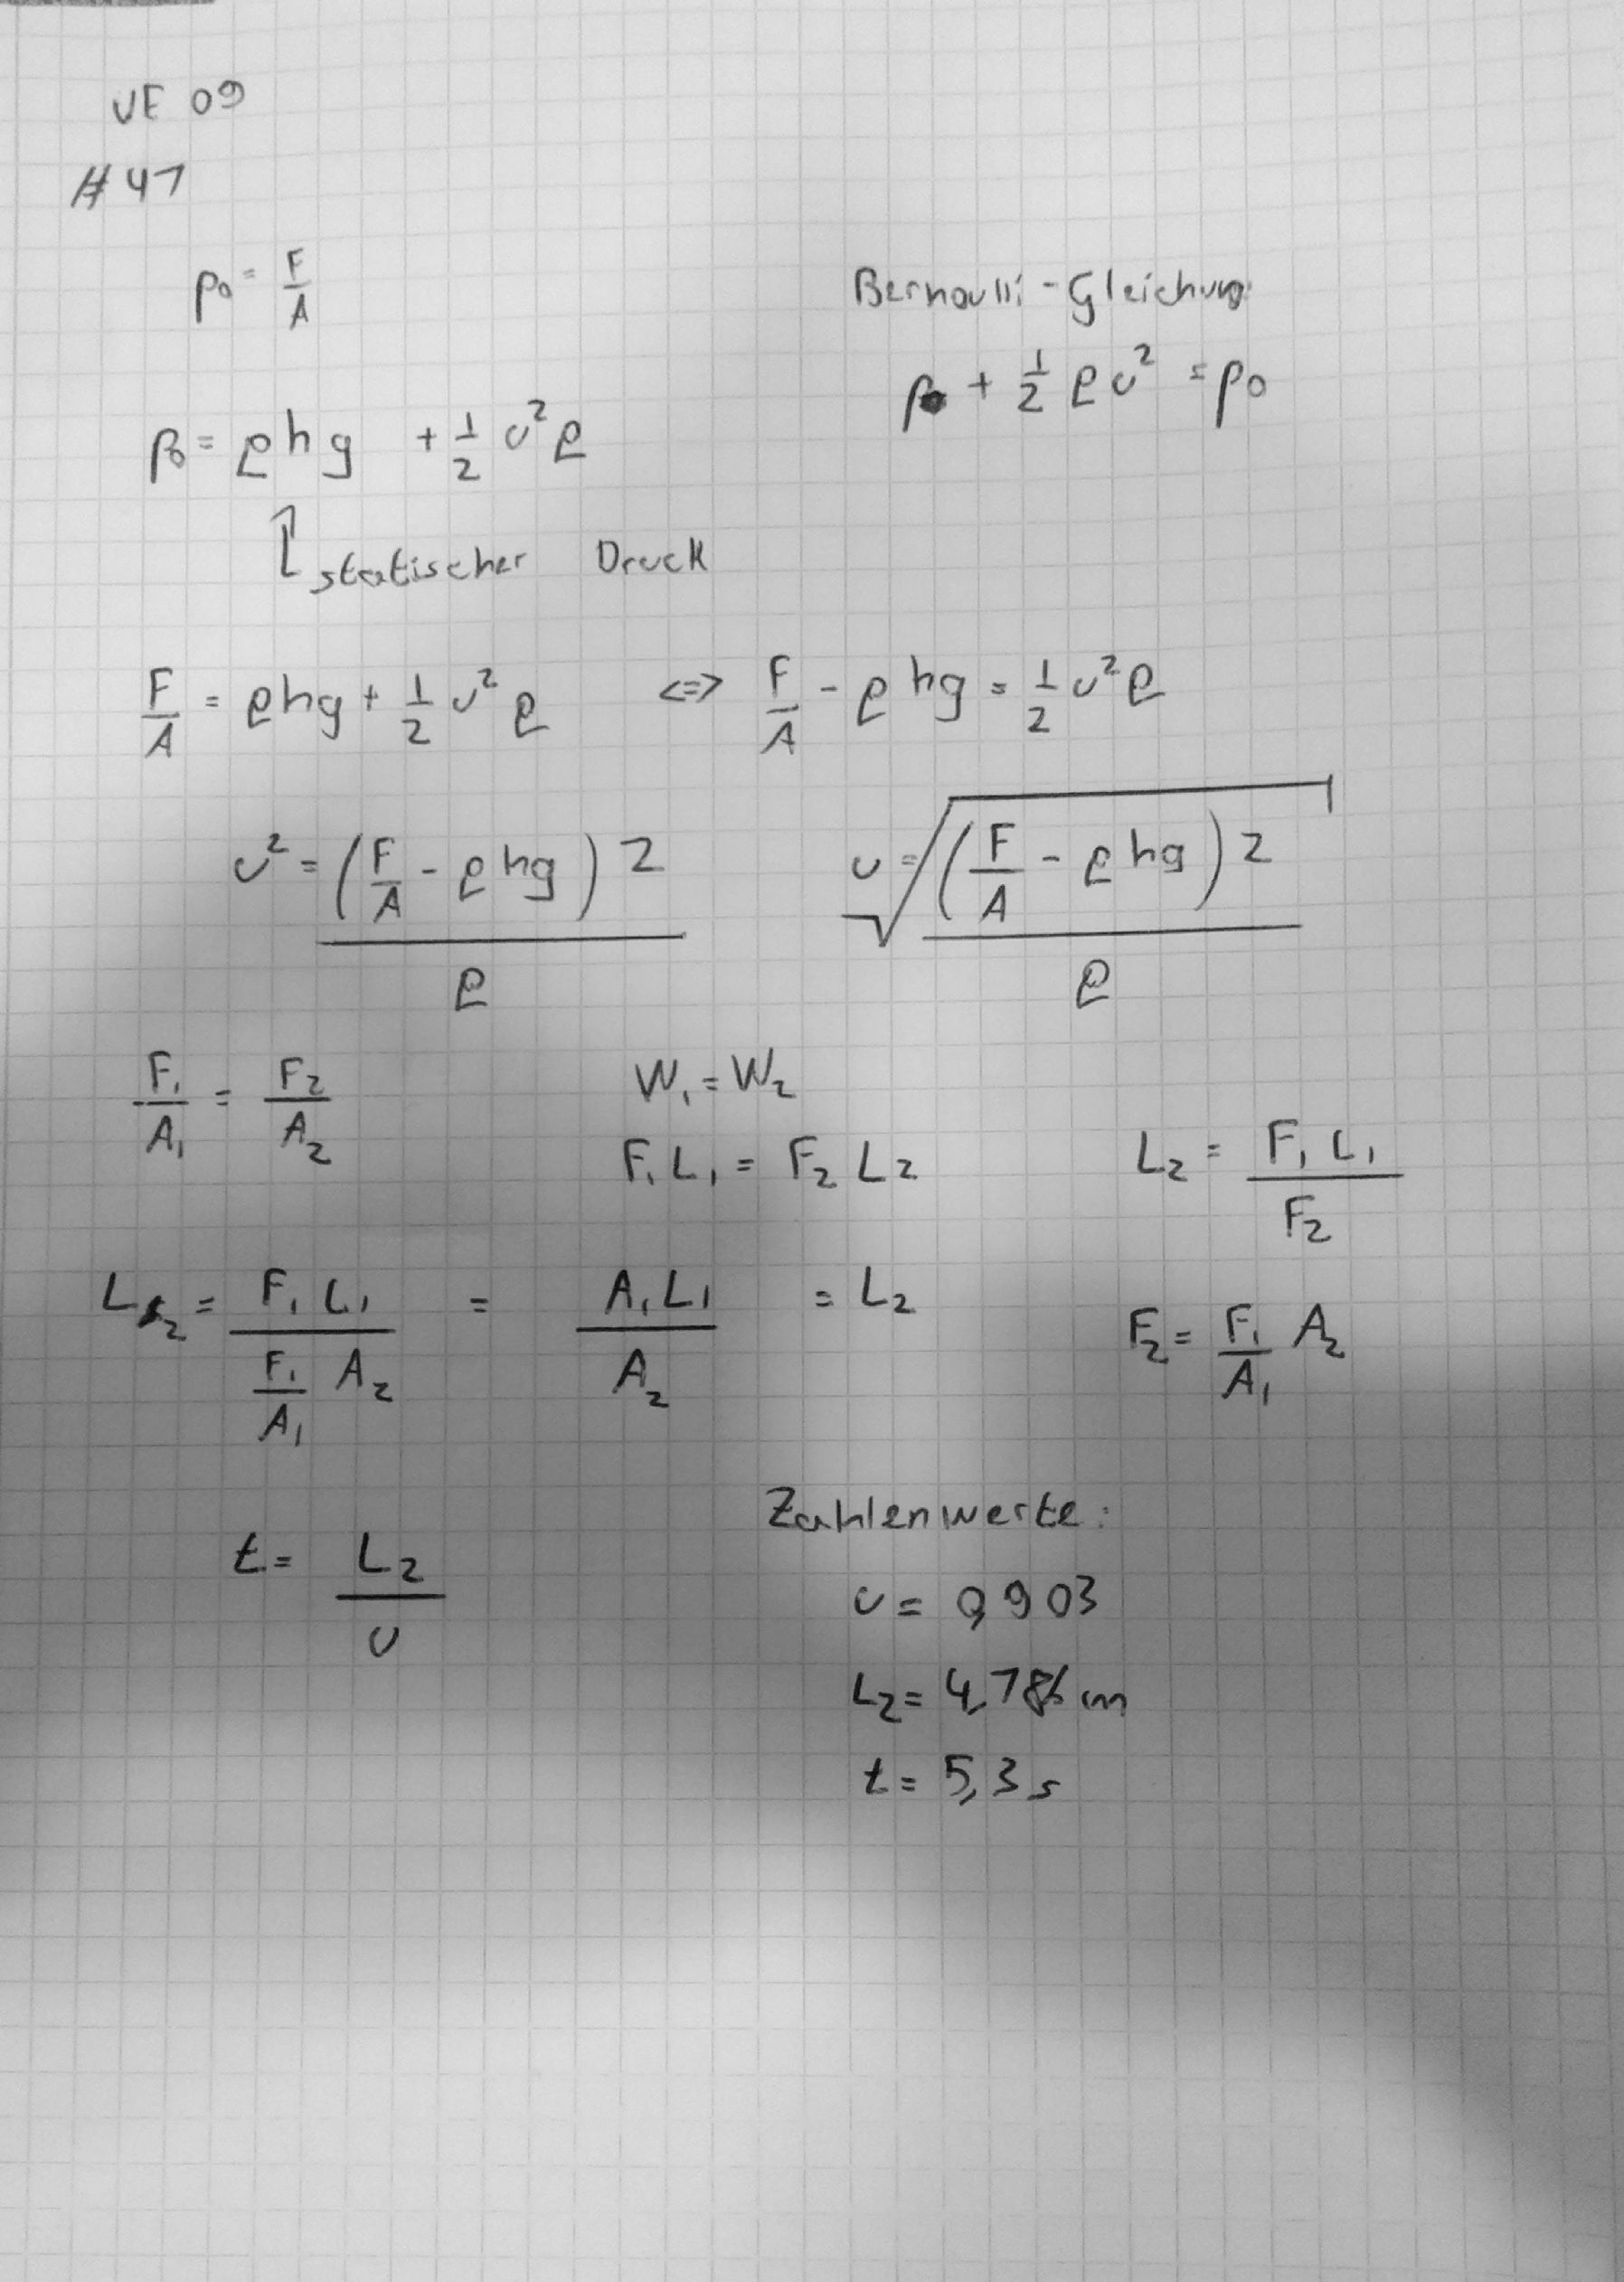 UE 09
# 41
p₀ = F/A
Bernoulli-Gleichung:
p + 1/2 ρ v² = p₀
p₀ = ρ h g + 1/2 v² ρ
↑ statischer Druck
F/A = ρ h g + 1/2 v² ρ <=> F/A - ρ h g = 1/2 v² ρ
v² = (F/A - ρ h g) 2 / ρ v = √((F/A - ρ h g) 2 / ρ)
F₁/A₁ = F₂/A₂ W₁ = W₂
F₁ L₁ = F₂ L₂ L₂ = F₁ L₁ / F₂
L₂ = F₁ L₁ / (F₁/A₁ A₂) = A₁ L₁ / A₂ = L₂ F₂ = F₁/A₁ A₂
t = L₂ / v
Zahlenwerte:
v = 0,903
L₂ = 4,786 m
t = 5,3 s